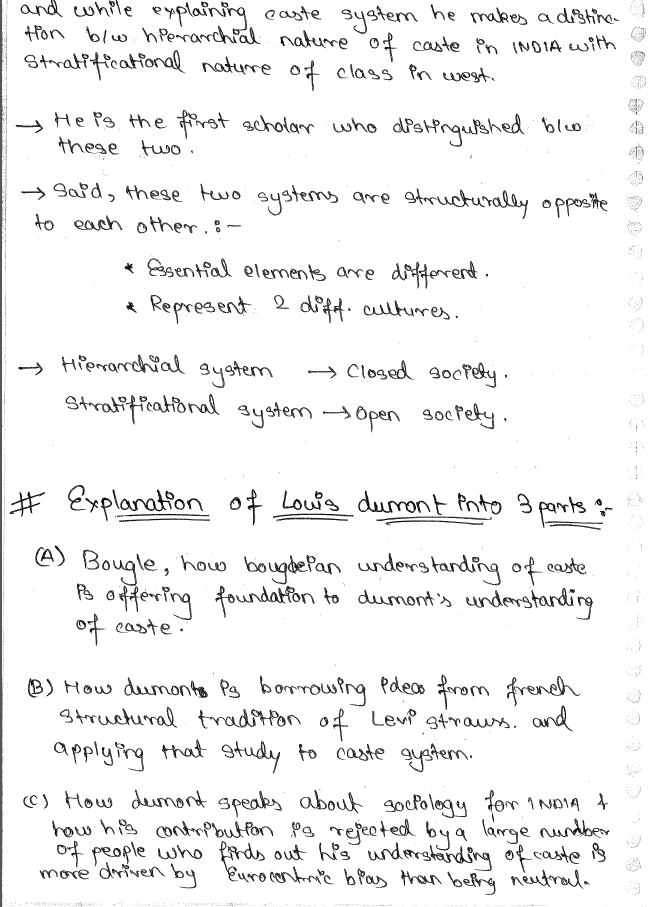 and while explaining caste system he makes a distinc-
tion b/w hierarchial nature of caste in INDIA with
stratificational nature of class in west.
→ He is the first scholar who distinguished b/w
these two.
→ Said, these two systems are structurally opposite
to each other. :-
* Essential elements are different.
* Represent 2 diff. cultures.
→ Hierarchial system → Closed society.
Stratificational system → Open society.
# Explanation of Louis dumont into 3 parts :-
(A) Bougle, how bougleian understanding of caste
is offering foundation to dumont's understanding
of caste.
(B) How dumont is borrowing idea from french
structural tradition of Levi strauss. and
applying that study to caste system.
(C) How dumont speaks about sociology for INDIA &
how his contribution is rejected by a large number
of people who finds out his understanding of caste is
more driven by Eurocentric bias than being neutral.